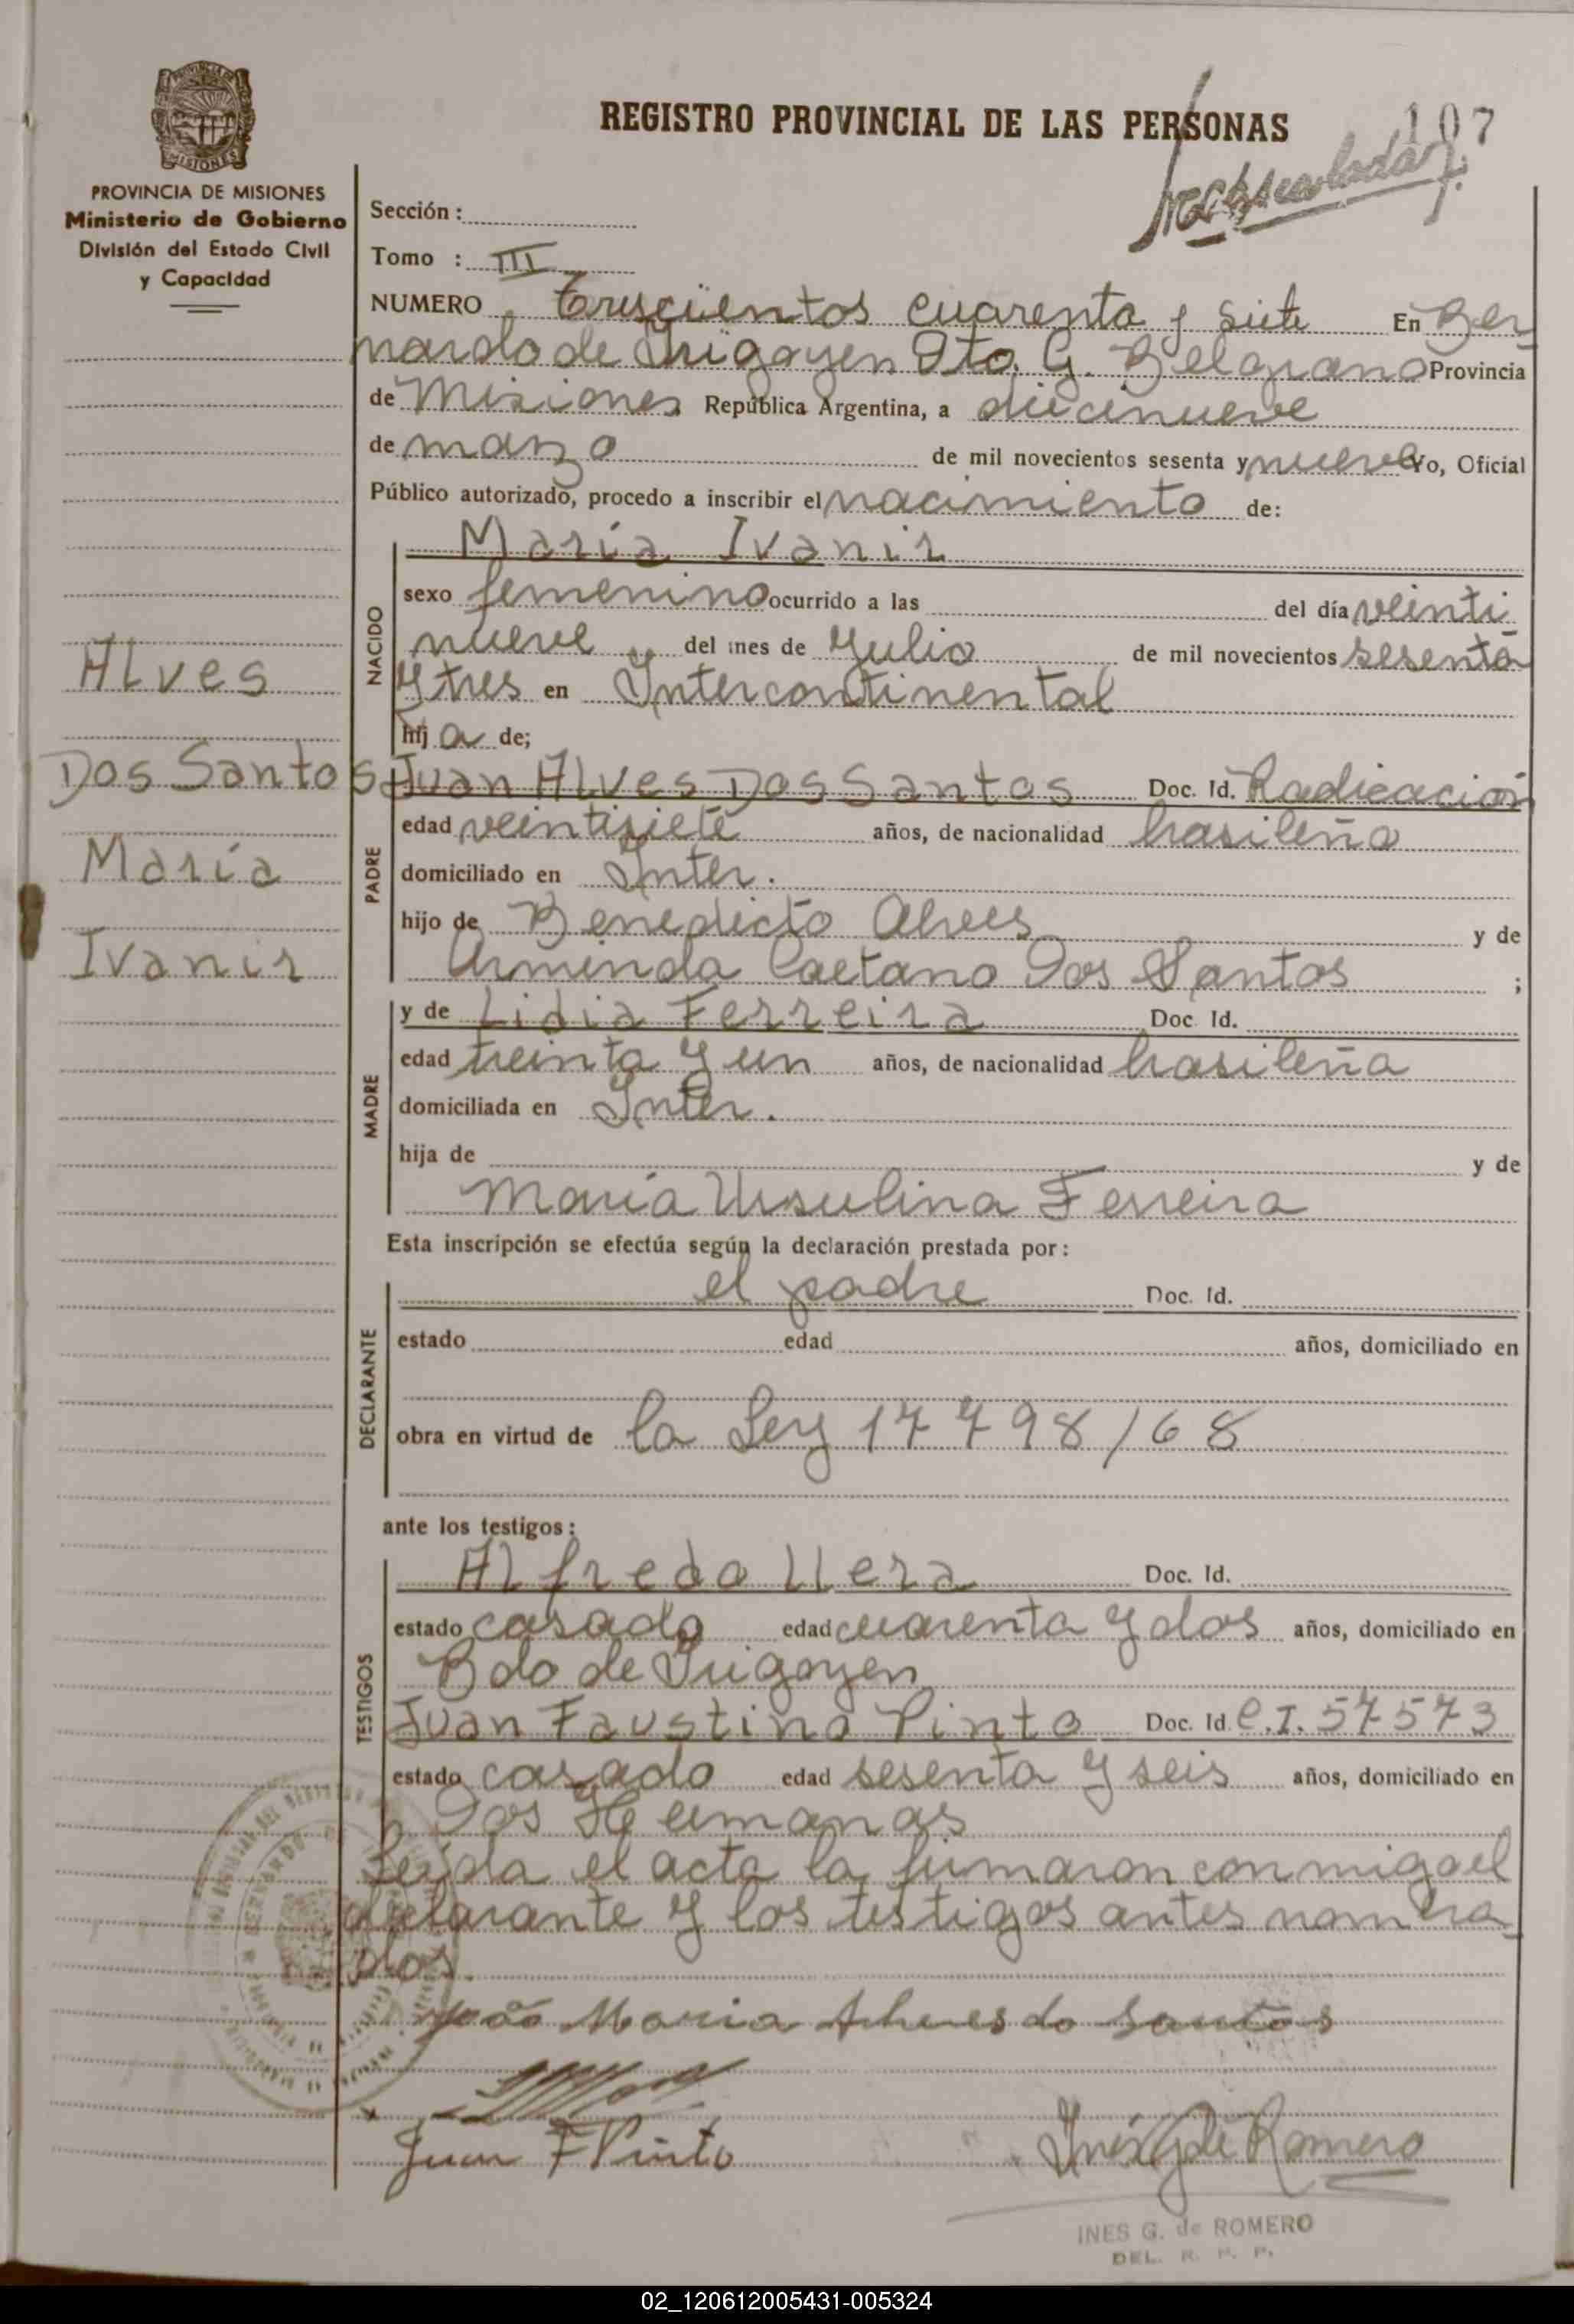 REGISTRO PROVINCIAL DE LAS PERSONAS
107
MISIONES
PROVINCIA DE MISIONES
Ministerio de Gobierno
División del Estado Civil
y Capacidad
Sección :
Tomo : III
NUMERO Trescientos cuarenta y siete En Ber
nardo de Irigoyen Dto. G. Belgrano Provincia
de Misiones República Argentina, a diecinueve
de marzo de mil novecientos sesenta y nueve Yo, Oficial
Público autorizado, procedo a inscribir el nacimiento de:
NACIDO
María Ivanir
sexo femenino ocurrido a las del día veinti
nueve del mes de Julio de mil novecientos sesenta
y tres en Intercontinental
hij a de;
Alves
Dos Santos
María
Ivanir
PADRE
Juan Alves Dos Santos Doc. Id. Radicación
edad veintisiete años, de nacionalidad brasileña
domiciliado en Inter.
hijo de Benedicto Alves y de
Arminda Caetano Dos Santos ;
MADRE
y de Lidia Ferreira Doc. Id.
edad treinta y un años, de nacionalidad brasileña
domiciliada en Inter.
hija de y de
María Ursulina Ferreira
Esta inscripción se efectúa según la declaración prestada por:
DECLARANTE
el padre Doc. Id.
estado edad años, domiciliado en
obra en virtud de la Ley 17798/68
ante los testigos:
TESTIGOS
Alfredo Llera Doc. Id.
estado casado edad cuarenta y dos años, domiciliado en
Bdo de Irigoyen
Juan Faustino Pinto Doc. Id. C.I. 57573
estado casado edad sesenta y seis años, domiciliado en
Dos Hermanas
Leída el acta la firmaron conmigo el
declarante y los testigos antes nombra
dos.
João Maria Alves do Santos
Juan F Pinto
Inés G de Romero
INES G. de ROMERO
DEL. R. P. P.
02_120612005431-005324